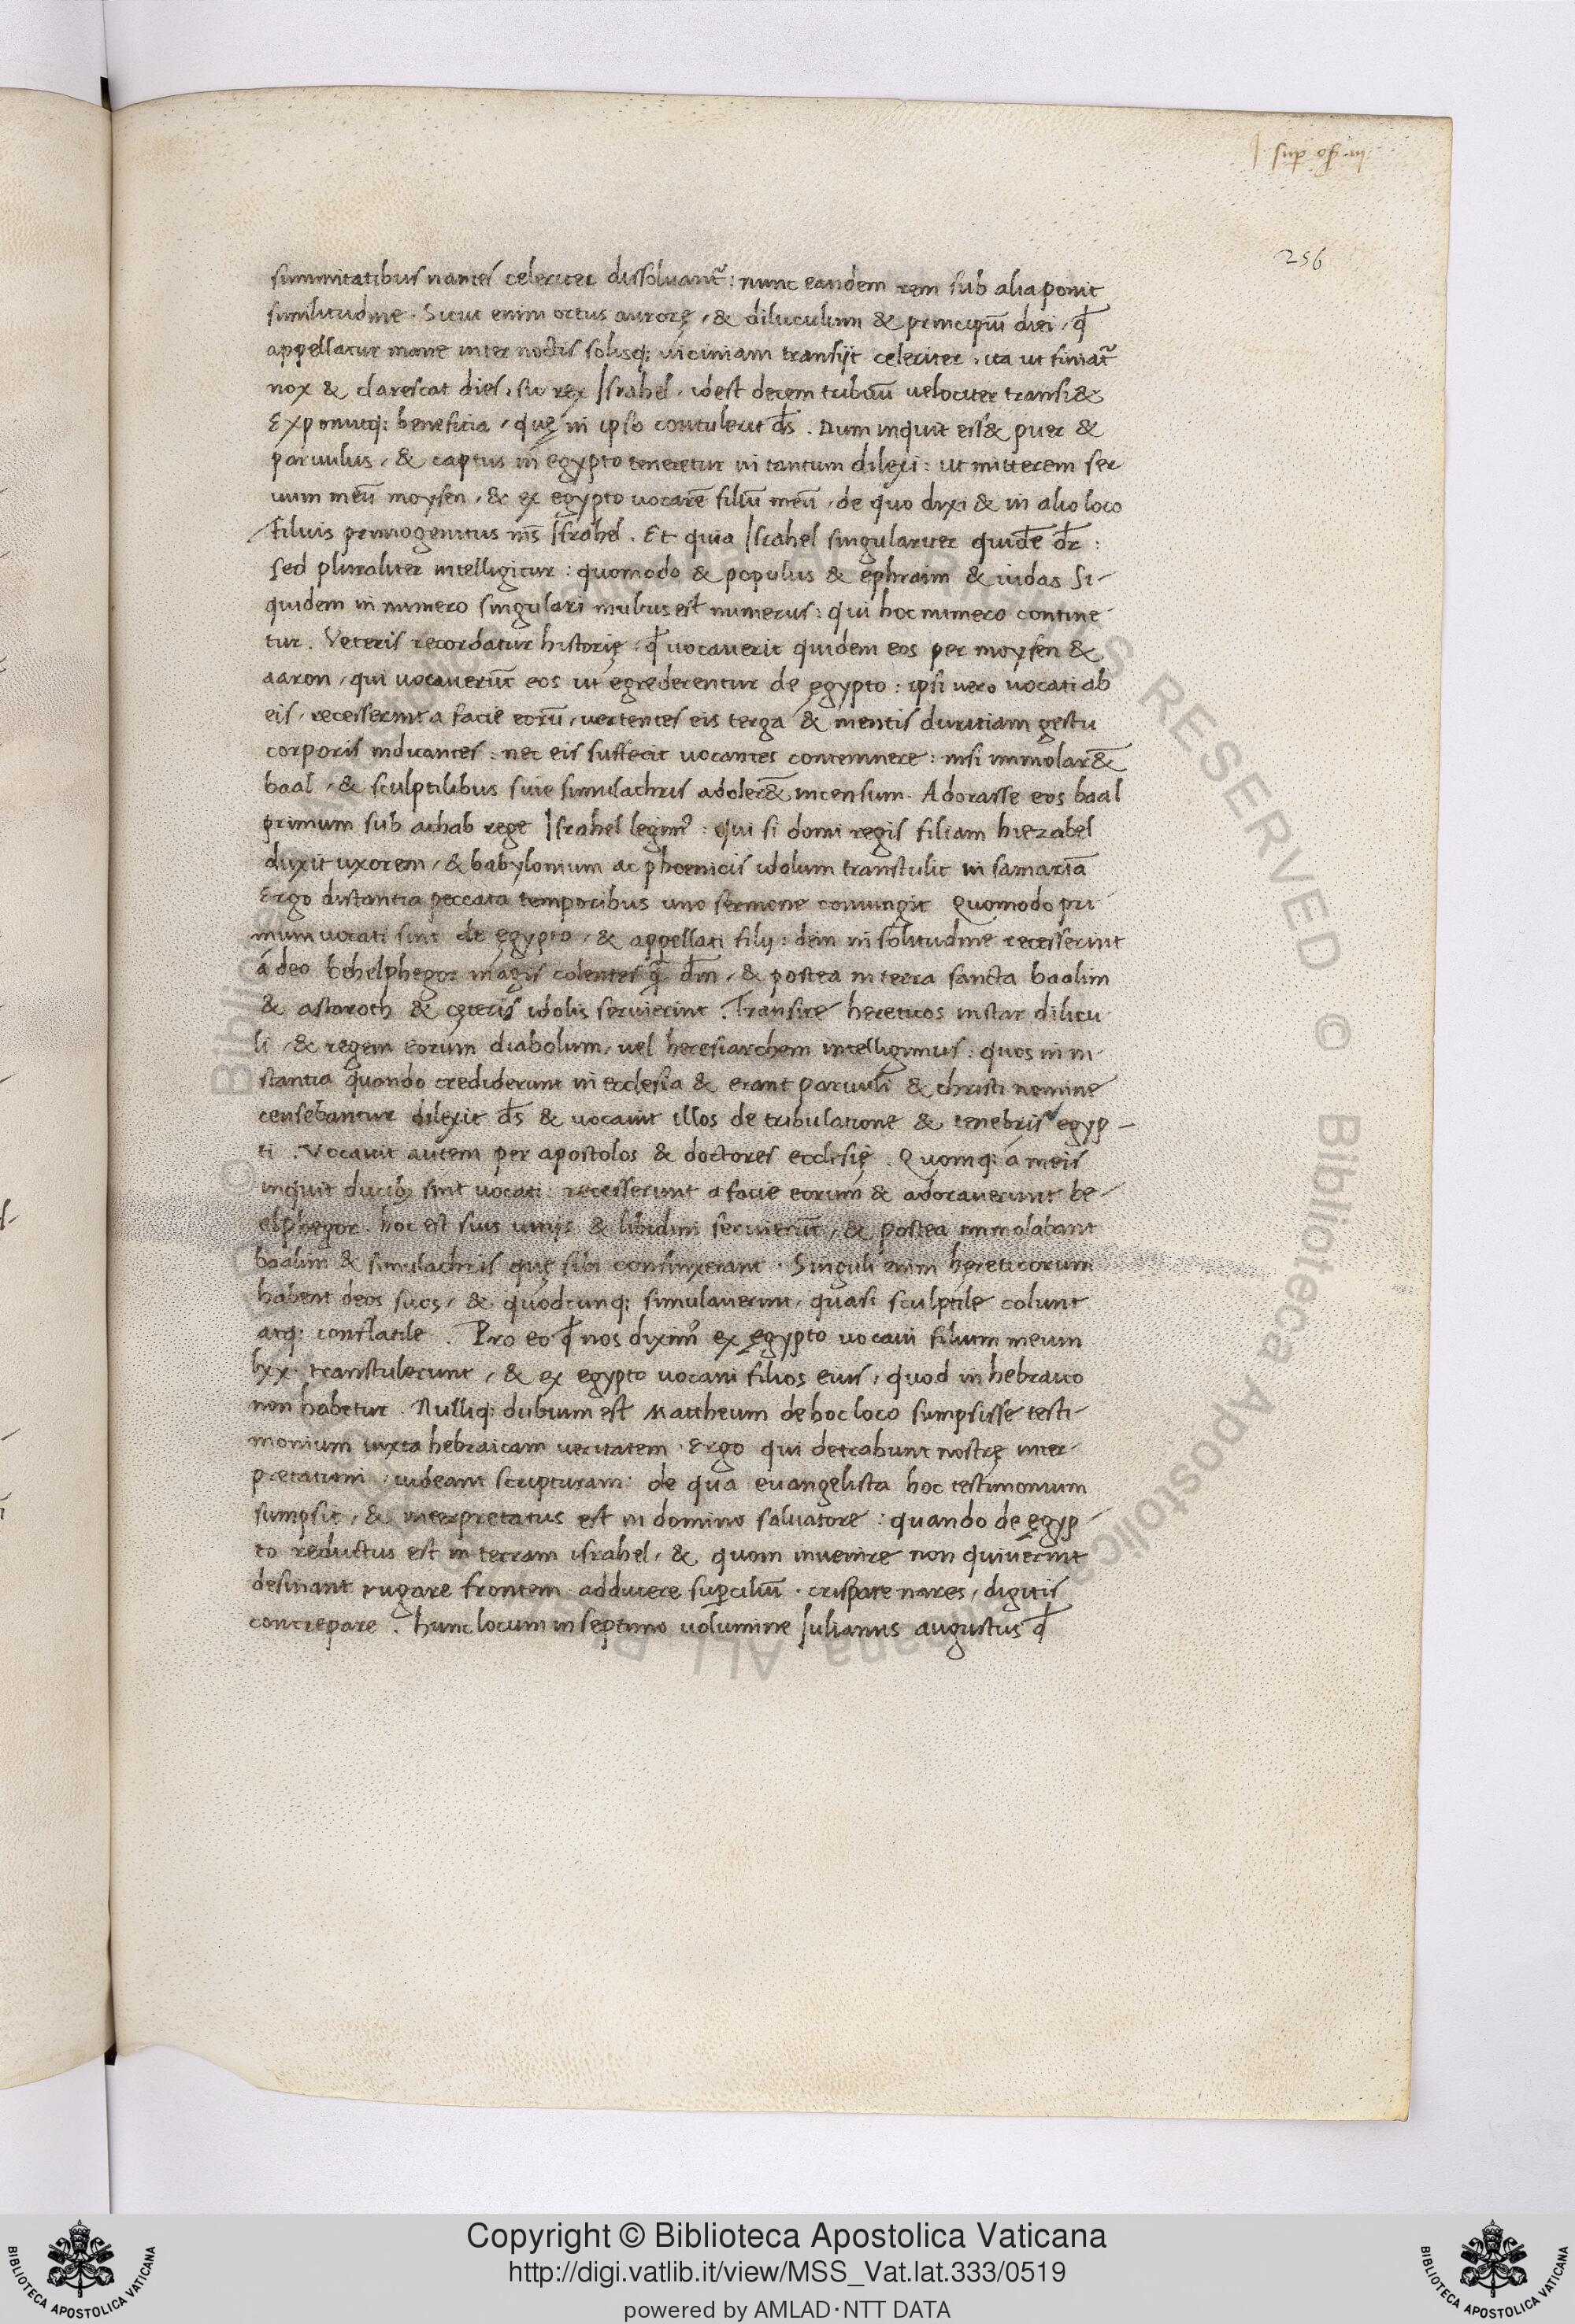 256
summitatibus nantes celeriter dissoluant᷑: nunc eandem rem sub alia ponit
similitudine. Sicut enim ortus aurorę, & diluculum & principiū diei, qđ
appellatur mane inter noctis solisq; viciniam transijt celeriter, ita ut finiat᷑
nox & clarescat dies, sic rex Israhel, idest decem tribuū velociter transi&
Exponitq; beneficia, quę in ipso contulerit ds̄. Dum inquit ess& puer &
parvulus, & captus in egypto teneretur in tantum dilexi: ut mitterem ser
vum meū moysen, & ex egypto vocarē filiū meū, de quo dixi & in alio loco
Filius primogenitus ms̄ Israhel. Et quia Israhel singulariter quidē dr̄:
sed pluraliter intelligitur: quomodo & populus & ephraim & iudas Si-
quidem in numero singulari multus est numerus: qui hoc numero contine-
tur. Veteris recordatur historię, qđ vocaverit quidem eos per moysen &
aaron, qui vocaverūt eos ut egrederentur de ęgypto: ipsi vero vocati ab
eis, recesserint a facie eorū, vertentes eis terga & mentis duritiam gestu
corporis indicantes: nec eis suffecit vocantes contemnere: nisi immolar&̄
baal, & sculptilibus sive simulachris adoler&̄ incensum. Adorasse eos baal
primum sub achab rege Israhel legim᷒: qui si domi regis filiam hiezabel
duxit uxorem, & babylonium ac phoenicis idolum transtulit in samariā
Ergo distantia peccata temporibus uno sermone coniungit Quomodo pri
mum vocati sint de ęgypto, & appellati filij: dein in solitudine recesserint
á deo behelphegor magis colentes q̄ dm̄, & postea in terra sancta baalim
& astaroth & cęteris idolis servierint. Transire hereticos instar dilucu
li, & regem eorum diabolum, vel heresiarchem intelligimus: quos in in-
stantia quando crediderunt in ecclesia & erant parvuli & christi nomine
censebantur dilexit ds̄ & vocavit illos de tribulatione & tenebris egyp-
ti. Vocavit autem per apostolos & doctores ecclesię. Quomq; á meis
inquit ducib; sint vocati: recesserunt a facie eorum & adoraverunt be-
elphegor, hoc est suis vitijs & libidini servierūt, & postea immolabant
baalim & simulachris quę sibi confinxerant. Singuli enim hęreticorum
habent deos suos, & quodcunq; simulaverint, quasi sculptile colunt
atq; conflatile. Pro eo qđ nos dixim᷒ ex ęgypto vocavi filium meum
lxx. transtulerunt, & ex egypto vocavi filios eius, quod in hebraico
non habetur. Nulliq; dubium est Mattheum de hoc loco sumpsisse testi-
monium iuxta hebraicam veritatem. Ergo qui detrahunt nostrę inter-
pretationi: videant scripturam: de qua evangelista hoc testimonium
sumpsit, & interpretatus est in domino salvatore: quando de ęgyp-
to reductus est in terram israhel, & quom invenire non quiverint
desinant rugare frontem adducere sup̱ciliū. crispare nares, digitis
concrepare. Hunc locum in septimo volumine Iulianus augustus qđ
Copyright © Biblioteca Apostolica Vaticana
http://digi.vatlib.it/view/MSS_Vat.lat.333/0519
powered by AMLAD·NTT DATA